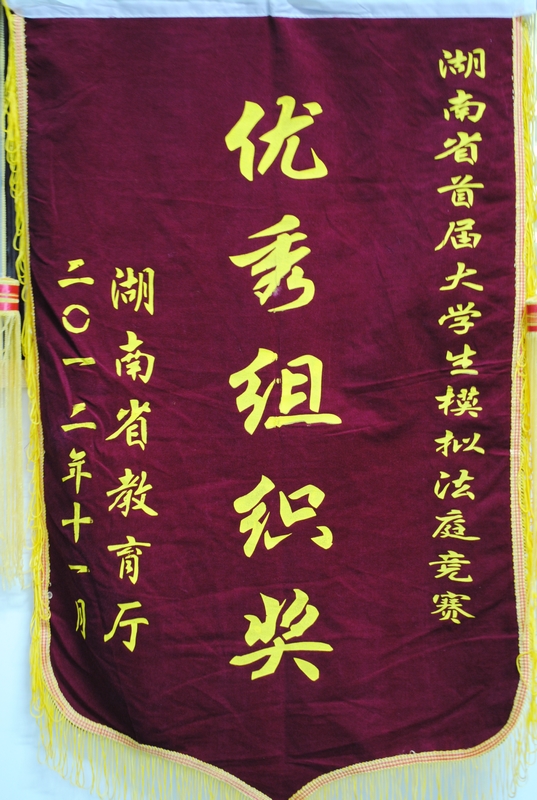 湖南省首届大学生模拟法庭竞赛
优秀组织奖
湖南省教育厅
二〇一二年十一月